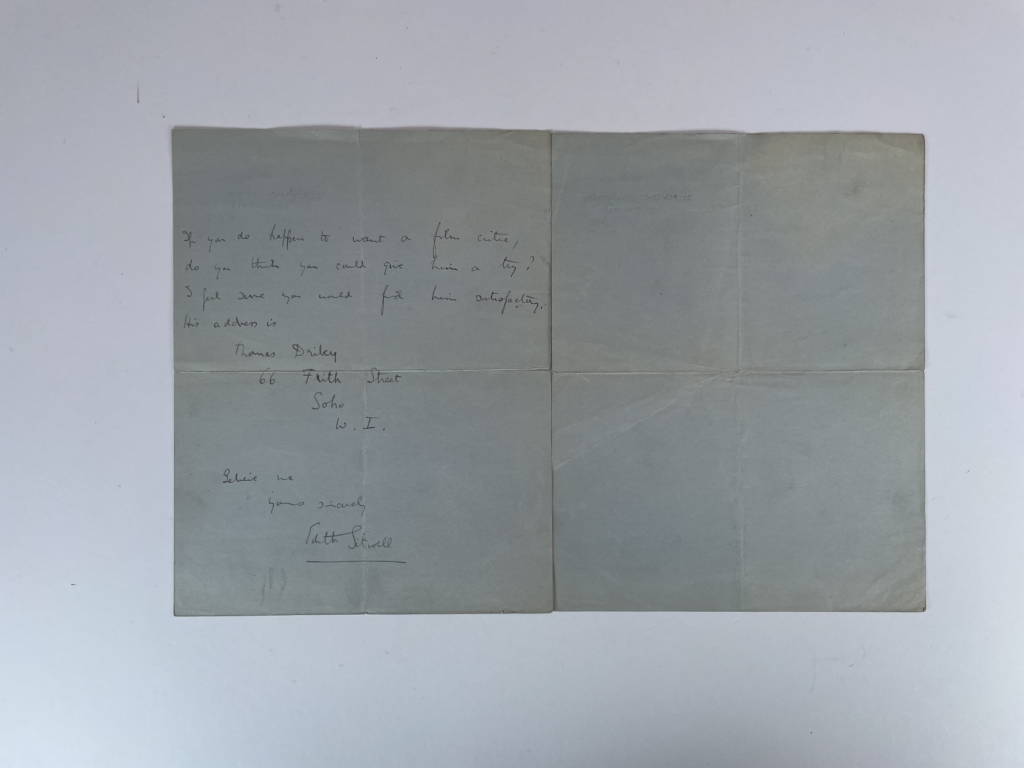 If you do happen to want a film critic,
do you think you could give him a try?
I feel sure you would find him satisfactory.
His address is
Thomas Driberg
66 Frith Street
Soho
W. I.
Believe me
yours sincerely
Edith Sitwell